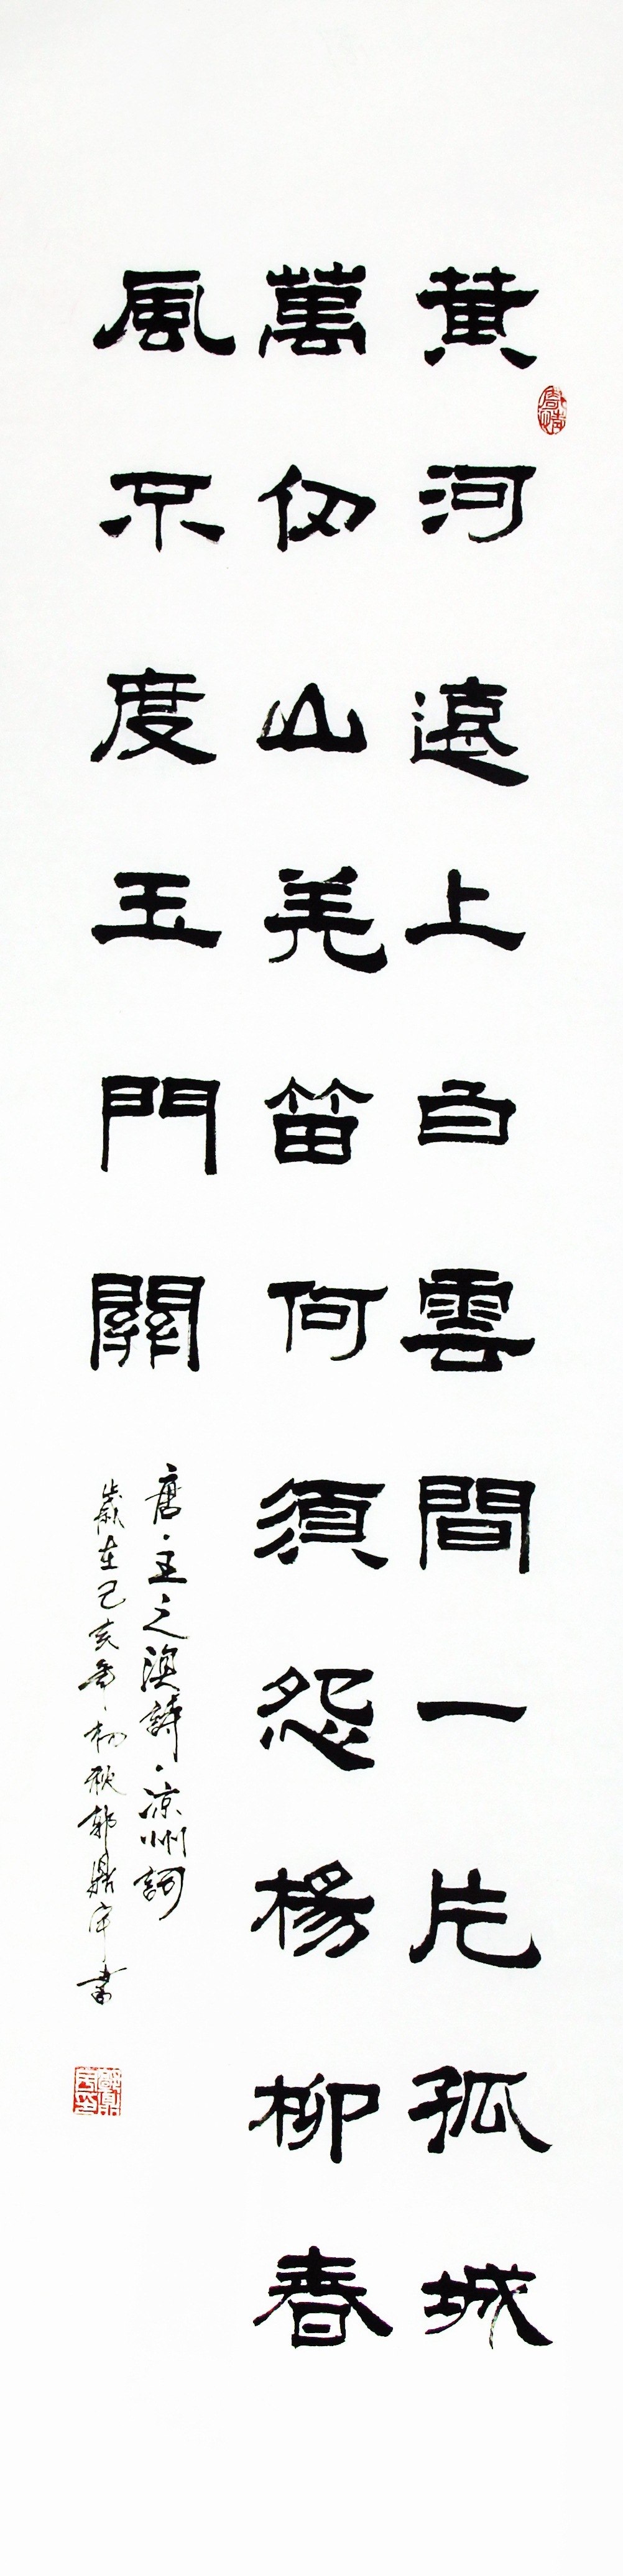 黄河遠上白雲間一片孤城
萬仞山羌笛何須怨楊柳春
風不度玉門關
唐王之渙詩凉州詞
歲在己亥年初秋郭鼎宇書